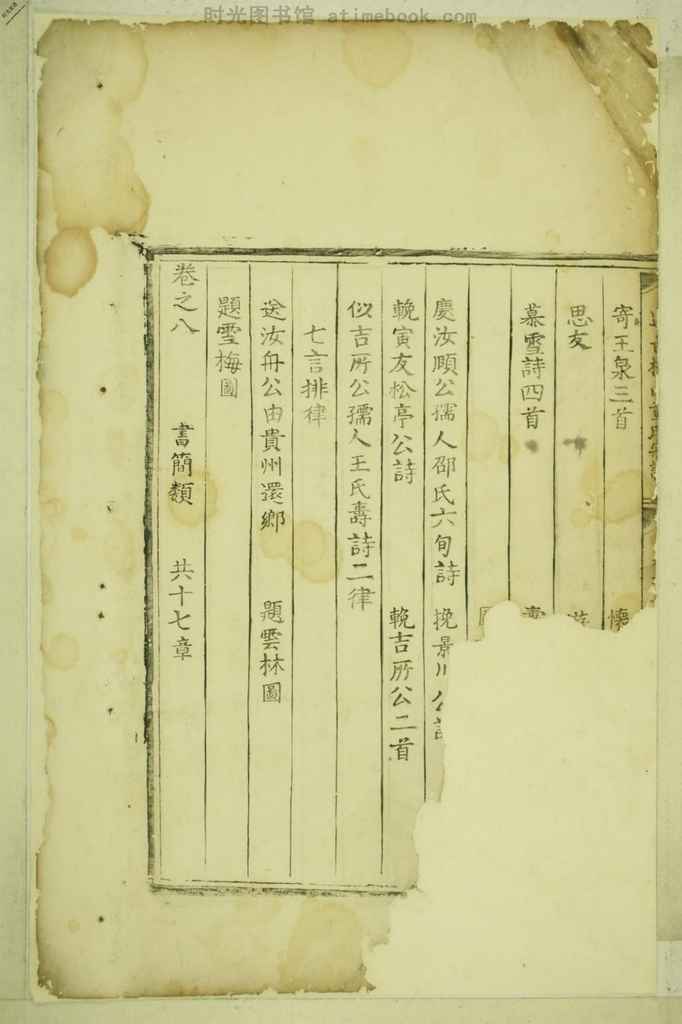 时光图书馆 atimebook.com
寄玉泉三首
思友
慕雪詩四首
慶汝順公孺人邵氏六旬詩 挽景川公詩
輓寅友松亭公詩 輓吉所公二首
似吉所公孺人王氏壽詩二律
七言排律
送汝舟公由貴州還鄉 題雲林圖
題雪梅圖
卷之八 書簡類 共十七章